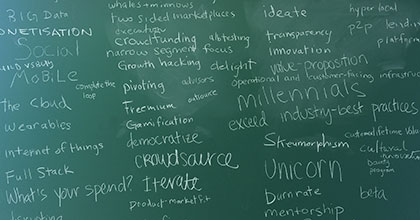 BIG Data
MONETISATION
Social
MOBILE
complete the loop
the cloud
wearables
internet of things
Full Stack
What's your spend?
whales + minnows
two sided marketplaces
execution
crowdfunding a/b testing
narrow segment focus
Growth hacking delight
pivoting advisors
Freemium outsource
Gamification
democratize
crowdsource
Iterate
product market fit
ideate
transparency
Innovation
value-proposition
operational and customer-facing
millennials
exceed industry-best practices
Skeuomorphism
UNICORN
burn rate
mentorship
hyper local
p2p
customer lifetime value
cultural
bounty program
beta